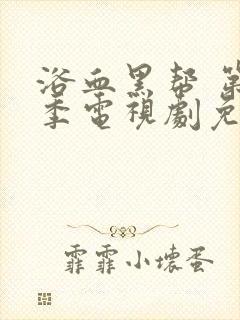 浴血黑帮 第
季電視劇免
霏霏小壞蛋